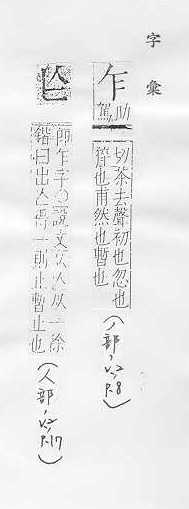 字彙
乍
助駕
切茶去聲初也忽也
暫也甫然也暫也
(丿部,
P.8)
即乍字○說文从亾从一徐
鍇曰出亾得一則止暫止也
(人部,
P.17)